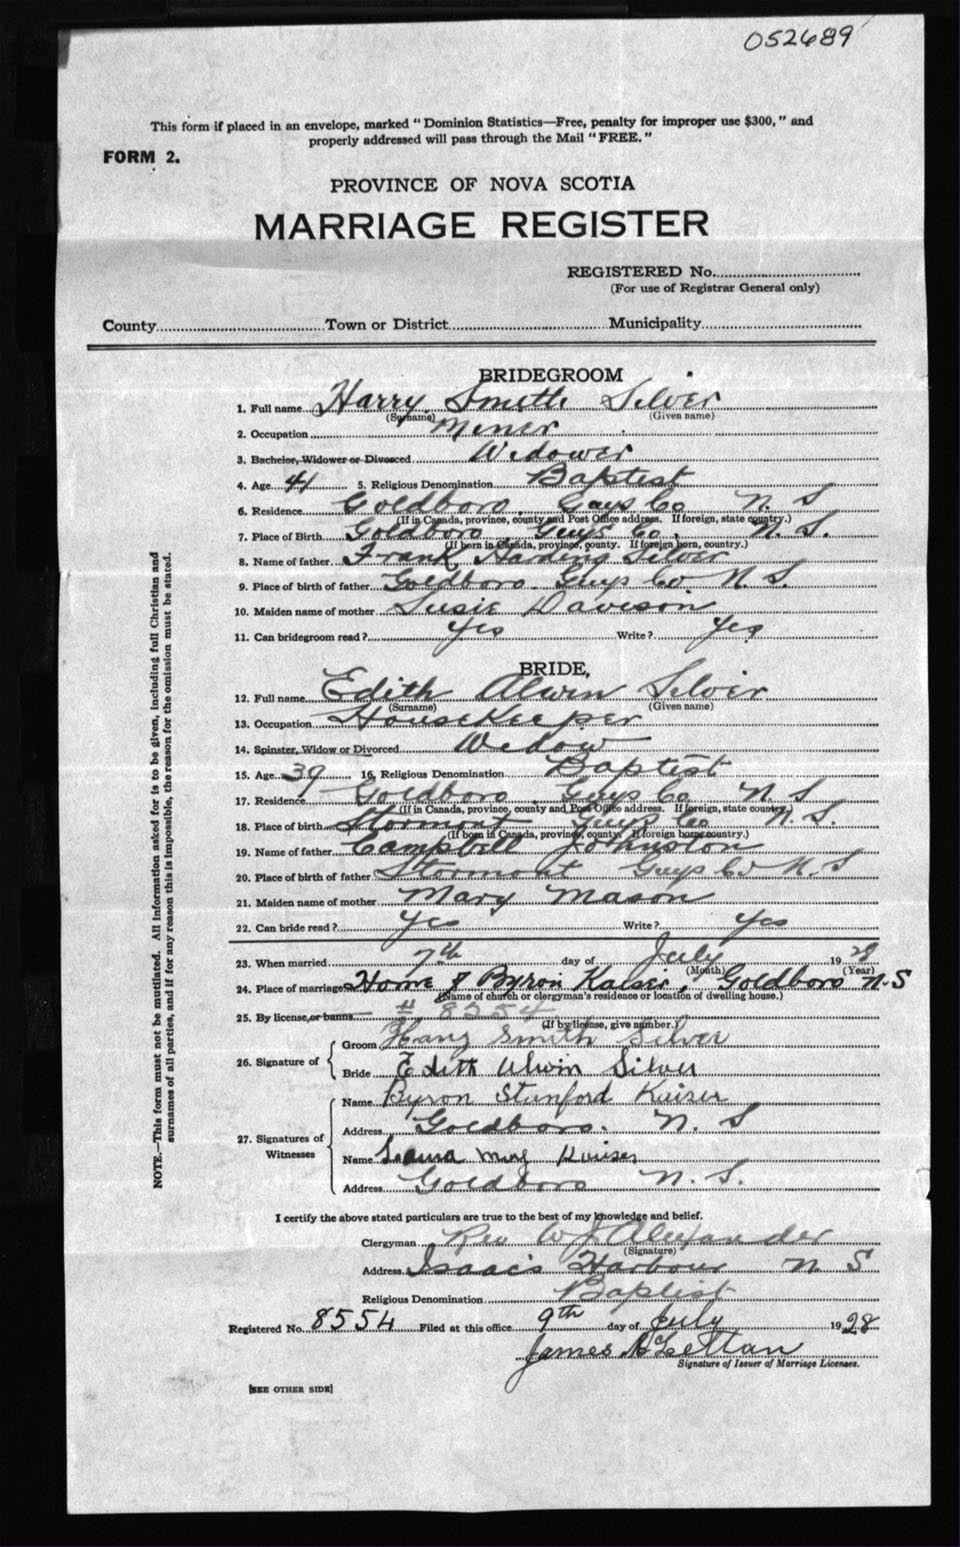 052689
This form if placed in an envelope, marked "Dominion Statistics—Free, penalty for improper use $300," and
properly addressed will pass through the Mail "FREE."
FORM 2.
PROVINCE OF NOVA SCOTIA
MARRIAGE REGISTER
REGISTERED No.
(For use of Registrar General only)
County Town or District Municipality
BRIDEGROOM
1. Full name Harry Smith Silver
(Surname) (Given name)
2. Occupation Miner
3. Bachelor, Widower or Divorced Widower
4. Age 41 5. Religious Denomination Baptist
6. Residence Goldboro, Guys Co N. S
(If in Canada, province, county and Post Office address. If foreign, state country.)
7. Place of Birth Goldboro Guys Co, N. S.
(If born in Canada, province, county. If foreign born, country.)
8. Name of father Frank Harding Silver
9. Place of birth of father Goldboro Guys Co N. S.
10. Maiden name of mother Susie Davison
11. Can bridegroom read? Yes Write? Yes
BRIDE,
12. Full name Edith Alwin Silver
(Surname) (Given name)
13. Occupation HouseKeeper
14. Spinster, Widow or Divorced Widow
15. Age 39 16. Religious Denomination Baptist
17. Residence Goldboro Guys Co N. S
(If in Canada, province, county and Post Office address. If foreign, state country.)
18. Place of birth Stormont Guys Co N. S.
(If born in Canada, province, county. If foreign born, country.)
19. Name of father Campbell Johnston
20. Place of birth of father Stormont Guys Co N. S
21. Maiden name of mother Mary Mason
22. Can bride read? Yes Write? Yes
23. When married 7th day of July 1928
(Month) (Year)
24. Place of marriage Home of Byron Kaiser, Goldboro N. S
(Name of church or clergyman's residence or location of dwelling house.)
25. By license, or banns # 8554
(If by license, give number.)
26. Signature of
Groom Harry Smith Silver
Bride Edith Alwin Silver
27. Signatures of Witnesses
Name Byron Stanford Kaiser
Address Goldboro. N. S
Name Kaiser
Address Goldboro N. S.
I certify the above stated particulars are true to the best of my knowledge and belief.
Clergyman Rev W J Alexander
(Signature)
Address Isaac's Harbour N. S
Religious Denomination Baptist
Registered No. 8554 Filed at this office 9th day of July 1928
James McLettan
Signature of Issuer of Marriage Licenses.
[SEE OTHER SIDE]
NOTE.—This form must not be mutilated. All information asked for is to be given, including full Christian and
surnames of all parties, and if for any reason this is impossible, the reason for the omission must be stated.